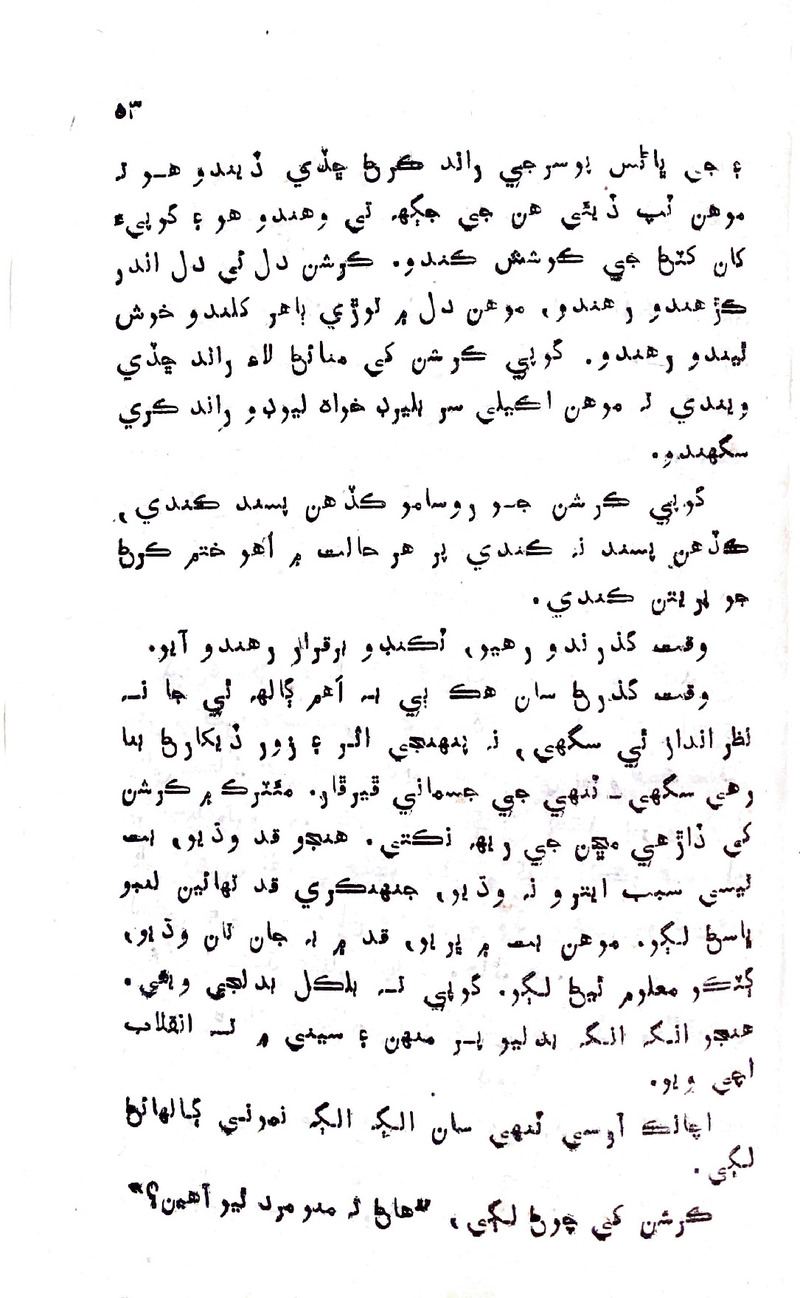 ۵۳
۽ جي پاڻس چوسرجي راند ڪرڻ ڇڏي ڏيندو هـو تـ
موهن ٽپ ڏيئي هن جي جڳهہ تي وهندو هو ۽ گوپيءَ
کان کٽڻ جي ڪوشش ڪندو. ڪرشن دل ئي دل اندر
ڪڙهندو رهندو، موهن دل ۾ توڙي ٻاهر کلندو خوش
ٿيندو رهندو. گوپي ڪرشن کي منائڻ لاءِ راند ڇڏي
ويندي تہ موهن اڪيلي سر ٻليرڊ خواه ليوڊو راند ڪري
سگهندو.
گوپي ڪرشن جـو روسامو ڪڏهن پسند ڪندي،
ڪڏهن پسند نہ ڪندي پر هر حالت ۾ اُهو ختم ڪرڻ
جو پريتن ڪندي.
وقت گذرندو رهيو، ٽڪنڊو برقرار رهندو آيو.
وقت گذرڻ سان هڪ ٻي بہ اَهم ڳالهہ ٿي جا نـہ
نظر انداز ٿي سگهي، نہ پنهنجي اثر ۽ زور ڏيکارڻ بنا
رهي سگهي ـ ٽنهي جي جسماني ڦيرڦار. مئٽرڪ ۾ ڪرشن
کي ڏاڙهي مڇن جي ريهہ نڪتي. هنجو قد وڌيو، بت
تيسي سبب ايترو نہ وڌيو، جنهنڪري قد تهائين لنبو
ڀاسڻ لڳو. موهن بت ۾ ڀريو، قد ۾ بہ جان تان وڌيو،
ڳٽڪو معلوم ٿيڻ لڳو. گوپي تـہ بلڪل بدلجي ويئي.
هنجو انگ انگ بدليو پـر منهن ۽ سيني ۾ تـہ انقلاب
اچي ويو.
اچانڪ آرسي ٽنهي سان الڳ الڳ نموني ڳالهائڻ
لڳي.
ڪرشن کي چوڻ لڳي، “هاڻ تہ مدو مرد ٿيو آهين؟”